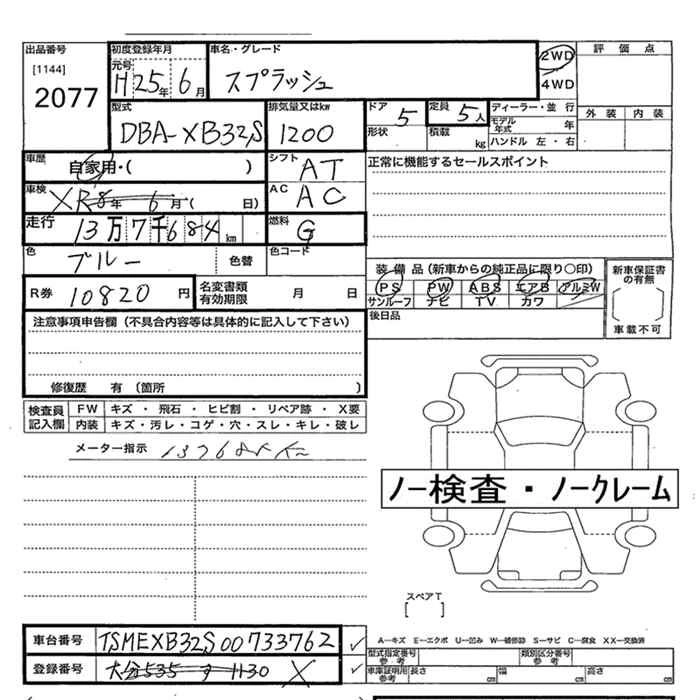 出品番号 初度登録年月 車名・グレード 2WD 評価点
[1144] 元号
2077 H25年6月 スプラッシュ 4WD
型式 排気量又はkw ドア 5 定員 5人 ディーラー・並行 外装 内装
DBA-XB32S 1200 形状 積載 kg モデル年式 年
ハンドル 左・右
車歴 自家用・( ) シフト AT 正常に機能するセールスポイント
車検 XR8年6月( 日) AC AC
走行 13万7千684km 燃料 G
色 ブルー 色替 色コード
装備品(新車からの純正品に限り○印) 新車保証書の有無
R券 10820円 名変書類有効期限 月 日 PS PW ABS エアB アルミW
サンルーフ ナビ TV カワ
注意事項申告欄(不具合内容等は具体的に記入して下さい) 後日品 車載不可
修復歴 有(箇所 )
検査員記入欄 FW キズ・飛石・ヒビ割・リペア跡・X要
内装 キズ・汚レ・コゲ・穴・スレ・キレ・破レ
メーター指示
ノー検査・ノークレーム
スペアT
[ ]
車台番号 TSMEXB32S00733762 ✓ A－キズ E－エクボ U－凹み W－補修跡 S－サビ C－腐食 XX－交換済
型式指定番号 参考 類別区分番号 参考
登録番号 大分535 す 1130 X ✓ 車庫証明用 参考 長さ cm 幅 cm 高さ cm